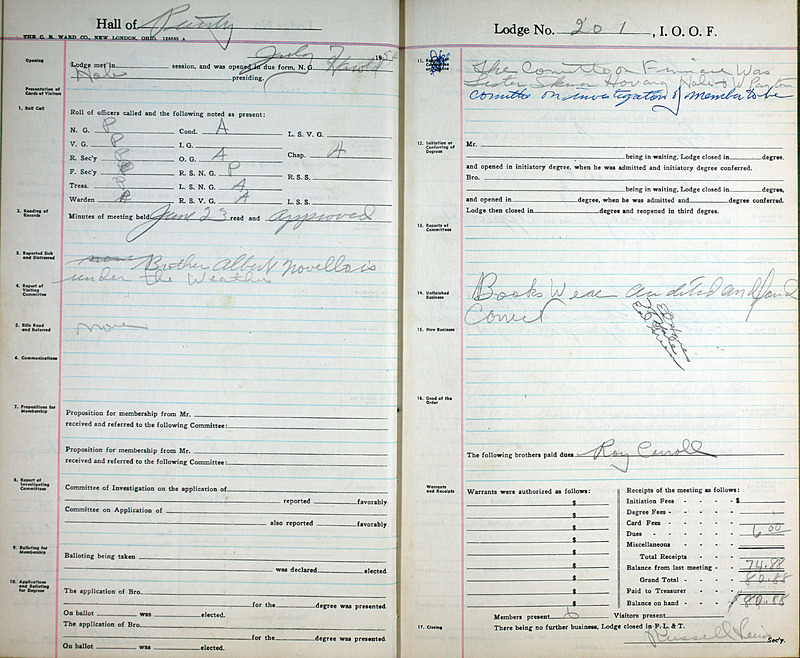 Hall of Purity
THE C. E. WARD CO., NEW LONDON, OHIO.
Opening
Lodge met in session, and was opened in due form, N. G. Harold
July 7 1954
Hale presiding.
Presentation of Cards of Visitors
1. Roll Call
Roll of officers called and the following noted as present:
N. G. P Cond. A L. S. V. G.
V. G. P I. G.
R. Sec'y P O. G. A Chap. A
F. Sec'y P R. S. N. G. P R. S. S.
Treas. P L. S. N. G. A
Warden R. S. V. G. A L. S. S.
2. Reading of Records
Minutes of meeting held June 23 read and approved
3. Reported Sick and Distressed
Brother Albert Novello is
under the Weather
4. Report of Visiting Committee
5. Bills Read and Referred
none
6. Communications
7. Propositions for Membership
Proposition for membership from Mr.
received and referred to the following Committee:
Proposition for membership from Mr.
received and referred to the following Committee:
8. Report of Investigating Committees
Committee of Investigation on the application of
reported favorably
Committee on Application of
also reported favorably
9. Balloting for Membership
Balloting being taken
was declared elected.
10. Applications and Balloting for Degrees
The application of Bro.
for the degree was presented.
On ballot was elected.
The application of Bro.
for the degree was presented.
On ballot was elected.
Lodge No. 201, I. O. O. F.
11.
The Committe on Was
Hale
Committe on investigation of member to be
12. Initiation or Conferring of Degrees
Mr.
being in waiting, Lodge closed in degree,
and opened in initiatory degree, when he was admitted and initiatory degree conferred.
Bro.
being in waiting, Lodge closed in degree,
and opened in degree, when he was admitted and degree conferred.
Lodge then closed in degree and reopened in third degree.
13. Reports of Committees
14. Unfinished Business
Books Were audited and found
Correct
15. New Business
16. Good of the Order
The following brothers paid dues Roy Carroll
Warrants and Receipts
Warrants were authorized as follows:
$
$
$
$
$
$
$
$
$
Receipts of the meeting as follows:
Initiation Fees $
Degree Fees
Card Fees
Dues 6.00
Miscellaneous
Total Receipts
Balance from last meeting 74.88
Grand Total 80.88
Paid to Treasurer
Balance on hand $80.88
Members present 6 Visitors present
17. Closing
There being no further business, Lodge closed in F. L. & T.
Russell Sec'y.